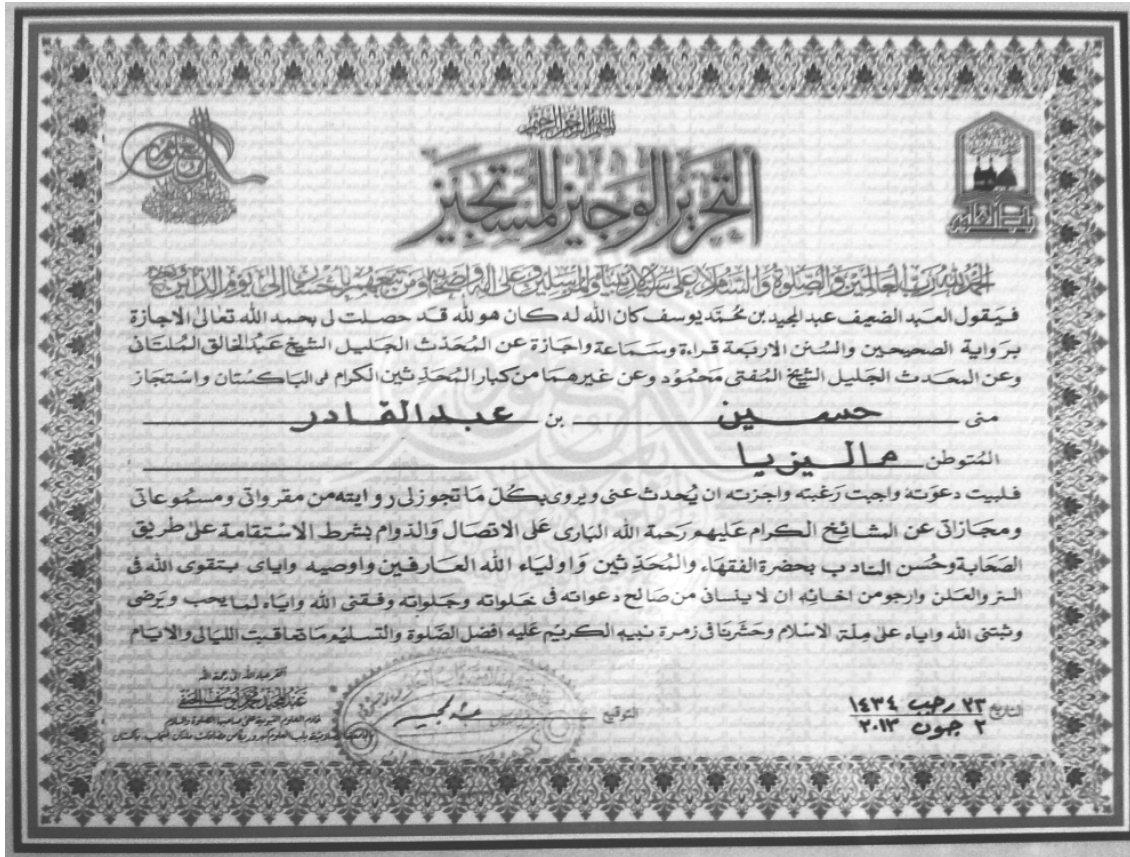 بسم الله الرحمن الرحيم
التحرير الوجيز للمستجيز
الحمد لله رب العالمين والصلوة والسلام على سيد الانبياء والمرسلين وعلى اله واصحابه ومن تبعهم باحسان الى يوم الدين
فيقول العبد الضعيف عبد المجيد بن محمد يوسف كان الله له كان هو لله قد حصلت لى بحمد الله تعالى الاجازة
برواية الصحيحين والسنن الاربعة قراءة وسماعة واجازة عن المحدث الجليل الشيخ عبد الخالق الملتانى
وعن المحدث الجليل الشيخ المفتى محمود وعن غيرهما من كبار المحدثين الكرام فى الباكستان واستجاز
منى حسين بن عبدالقادر
المتوطن ماليزيا
فلبيت دعوته واجبت رغبته واجزته ان يحدث عنى ويروى بكل ما تجوز لى روايته من مقرواتى ومسموعاتى
ومجازاتى عن المشائخ الكرام عليهم رحمة الله البارى على الاتصال والدوام بشرط الاستقامة على طريق
الصحابة وحسن التادب بحضرة الفقهاء والمحدثين واولياء الله العارفين واوصيه واياى بتقوى الله فى
السر والعلن وارجو من اخائه ان لا ينسانى من صالح دعواته فى خلواته وجلواته وفقنى الله واياه لما يحب ويرضى
وثبتنى الله واياه على ملة الاسلام وحشرنا فى زمرة نبيه الكريم عليه افضل الصلوة والتسليم ما تعاقبت الليالى والايام
التاريخ ٢٣ رجب ١٤٣٤
٢ جون ٢٠١٣
التوقيع عبد المجيد
افقر عباد الله الى رحمة الله
خادم العلوم النبوية على صاحبها الصلوة والسلام